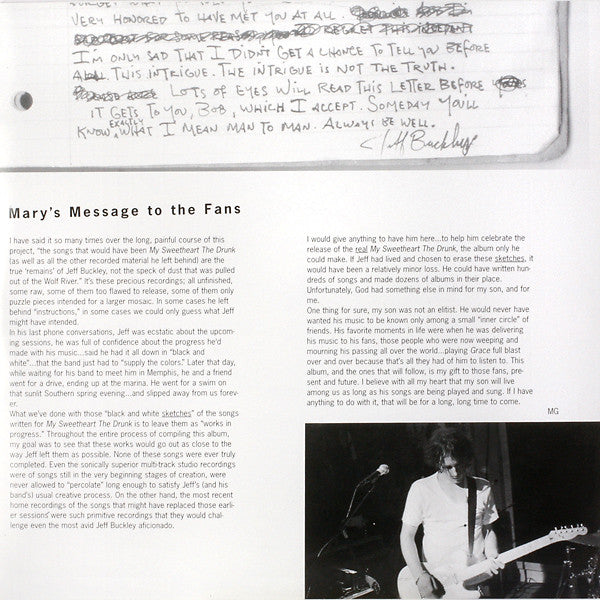 VERY HONORED TO HAVE MET YOU AT ALL.
TO REGRET THIS INSTANT
I'M ONLY SAD THAT I DIDN'T GET A CHANCE TO TELL YOU BEFORE
ALL THIS INTRIGUE. THE INTRIGUE IS NOT THE TRUTH.
LOTS OF EYES WILL READ THIS LETTER BEFORE
IT GETS TO YOU, BOB, WHICH I ACCEPT. SOMEDAY YOU'LL
KNOW EXACTLY WHAT I MEAN MAN TO MAN. ALWAYS BE WELL.
Jeff Buckley
Mary's Message to the Fans
I have said it so many times over the long, painful course of this
project, "the songs that would have been My Sweetheart The Drunk
(as well as all the other recorded material he left behind) are the
true 'remains' of Jeff Buckley, not the speck of dust that was pulled
out of the Wolf River." It's these precious recordings; all unfinished,
some raw, some of them too flawed to release, some of them only
puzzle pieces intended for a larger mosaic. In some cases he left
behind "instructions," in some cases we could only guess what Jeff
might have intended.
In his last phone conversations, Jeff was ecstatic about the upcom-
ing sessions, he was full of confidence about the progress he'd
made with his music...said he had it all down in "black and
white"...that the band just had to "supply the colors." Later that day,
while waiting for his band to meet him in Memphis, he and a friend
went for a drive, ending up at the marina. He went for a swim on
that sunlit Southern spring evening...and slipped away from us forev-
er.
What we've done with those "black and white sketches" of the songs
written for My Sweetheart The Drunk is to leave them as "works in
progress." Throughout the entire process of compiling this album,
my goal was to see that these works would go out as close to the
way Jeff left them as possible. None of these songs were ever truly
completed. Even the sonically superior multi-track studio recordings
were of songs still in the very beginning stages of creation, were
never allowed to "percolate" long enough to satisfy Jeff's (and his
band's) usual creative process. On the other hand, the most recent
home recordings of the songs that might have replaced those earli-
er sessions were such primitive recordings that they would chal-
lenge even the most avid Jeff Buckley aficionado.
I would give anything to have him here...to help him celebrate the
release of the real My Sweetheart The Drunk, the album only he
could make. If Jeff had lived and chosen to erase these sketches, it
would have been a relatively minor loss. He could have written hun-
dreds of songs and made dozens of albums in their place.
Unfortunately, God had something else in mind for my son, and for
me.
One thing for sure, my son was not an elitist. He would never have
wanted his music to be known only among a small "inner circle" of
friends. His favorite moments in life were when he was delivering
his music to his fans, those people who were now weeping and
mourning his passing all over the world...playing Grace full blast
over and over because that's all they had of him to listen to. This
album, and the ones that will follow, is my gift to those fans, pre-
sent and future. I believe with all my heart that my son will live
among us as long as his songs are being played and sung. If I have
anything to do with it, that will be for a long, long time to come.
MG